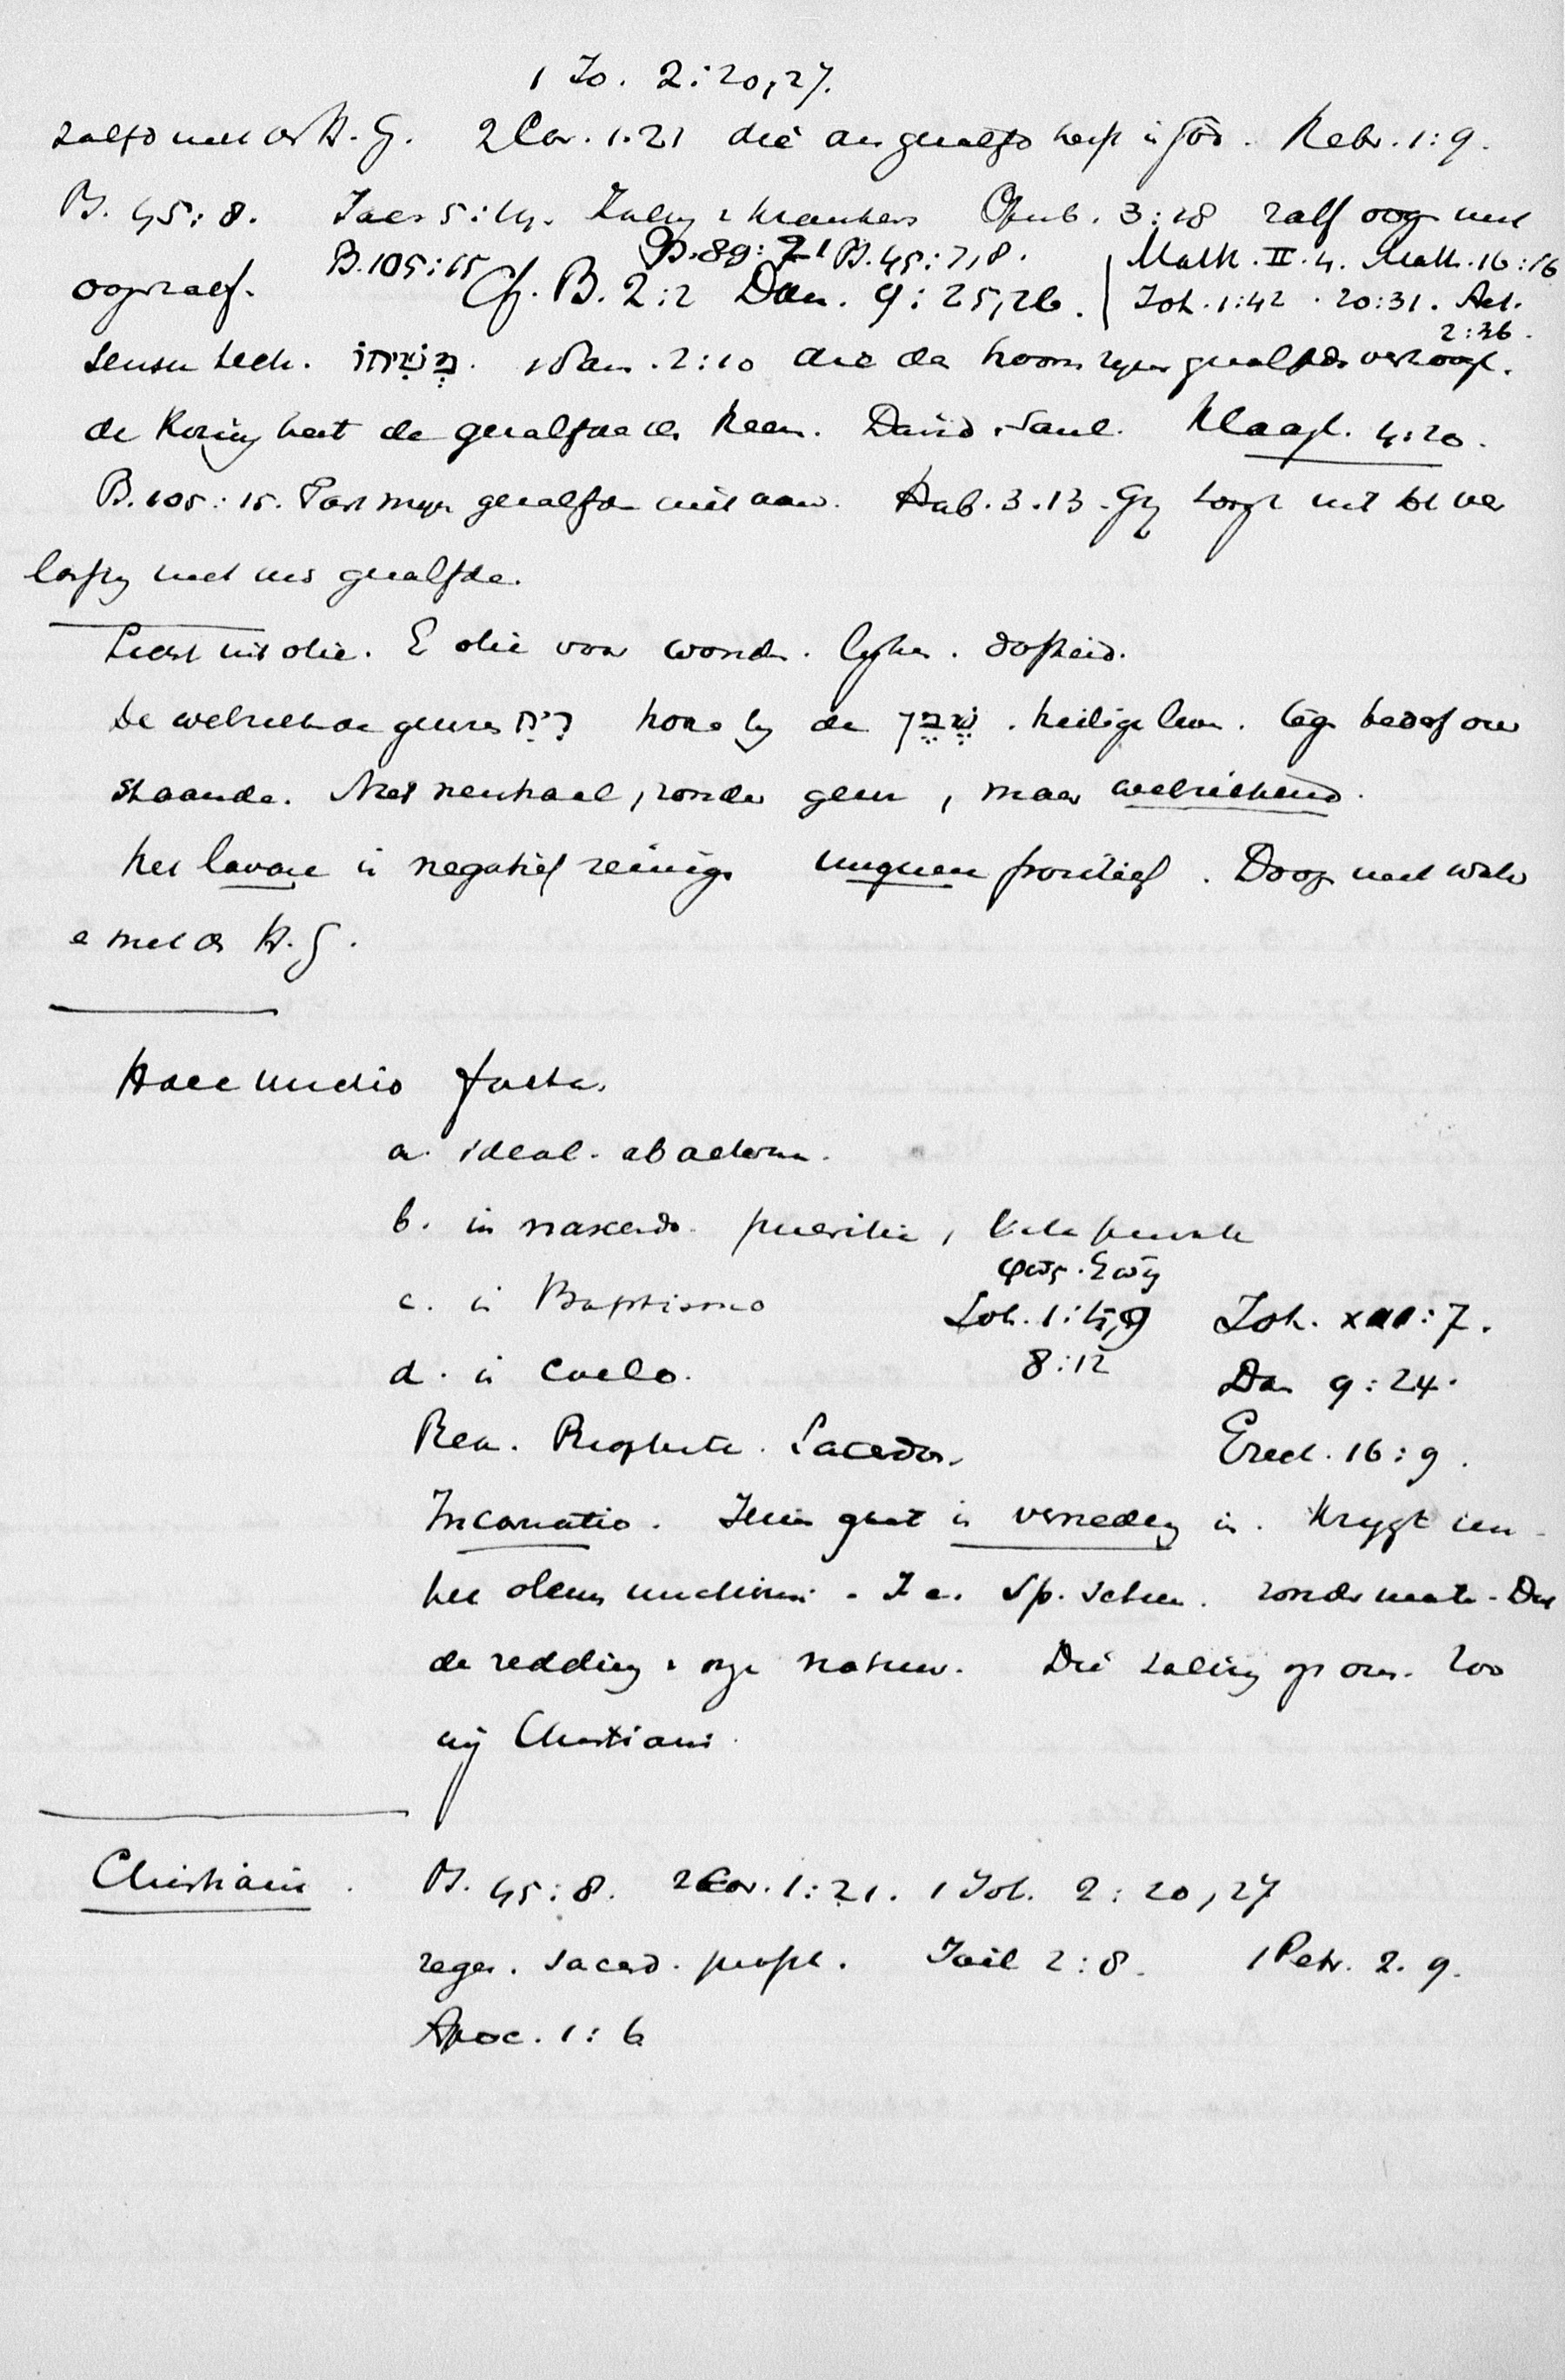 1 Jo. 2:20,27.
zalfd met d H. G. 2 Cor. 1.21 die ons gezalfd heeft is God. Hebr. 1:9.
Ps. 45:8. Jac 5:14. Zalvg v kranken Openb. 3:18 zalf oog met
Ps. 105:15 Ps. 89:21 Ps. 45:7,8. Matth. II. 4. Matth. 16:16
oogenzalf. Cf. Ps. 2:2 Dan. 9:25,26. Joh. 1:42 . 20:31. Act.
2:36.
Sensu tech. מְשִׁיחוֹ. 1 Sam. 2:10 die den hoorn zijns gezalfden verhoogt.
de Koning heet de gezalfde des Heeren. David. Saul. Klaagl. 4:20.
Ps. 105:15. Tast mijn gezalfden niet aan. Hab. 3.13. Gij toogt uit tot ver
lossing met uws gezalfde.
Licht uit olie. E olie voor wonden. lijken. dofheid.
De welriekende geuren רֵיחַ kone bij de שֶׁמֶן. heilige
staande. Niet neutraal, zonder geur, maar welriekend.
het lavare is negatief reinigen unguere positief. Doop met water
e met d H. G.
Haec unctio facta.
a. ideal. ab aeterno.
b. in nascendo. pueritia, vita privata
φῶς. ζωή
c. in Baptismo Joh. 1:4,9 Joh. XVI:7.
d. in Coelo. 8:12 Dan 9:24.
Rex. Propheta. Sacerdos. Ezech. 16:9.
Incarnatio. Jezus gaat in vernedering in. Krijgt
het oleum unctionis. I. e. Sp. Sctum. zonder mate. Dat
de redding v onze natuur. Die zalving op ons. Zoo
wij Christiani.
Christiani. Ps. 45:8. 2 Cor. 1:21. 1 Joh. 2:20,27
reges. sacerd. proph. Joël 2:8. 1 Petr. 2.9.
Apoc. 1:6